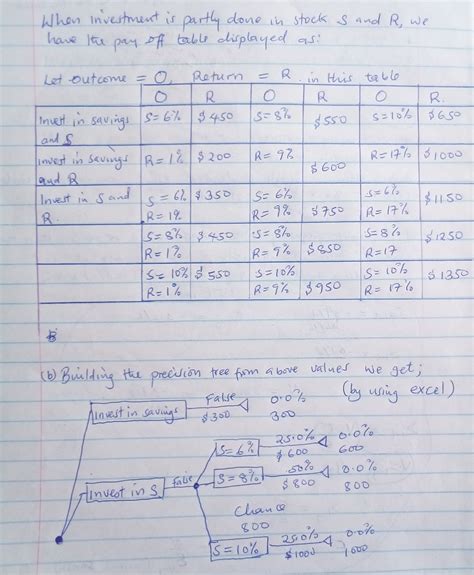 When investment is partly done in stock S and R, we
have the pay off table displayed as:
Let outcome = O, Return = R in this table
O R O R O R.
Invest in savings and S S=6% $450 S=8% $550 S=10% $650
invest in savings and R R=1% $200 R=9% $600 R=17% $1000
Invest in S and R. S=6% R=1% $350 S=6% R=9% $750 S=6% R=17% $1150
S=8% R=1% $450 S=8% R=9% $850 S=8% R=17 $1250
S=10% R=1% $550 S=10% R=9% $950 S=10% R=17% $1350
(b) Building the precision tree from above values we get;
(by using excel)
Invest in savings False $300 0.0% 300
Invest in S False
S=6% 25.0% $600 0.0% 600
S=8% 50% $800 0.0% 800
Chance
800
S=10% 25.0% $1000 0.0% 1000